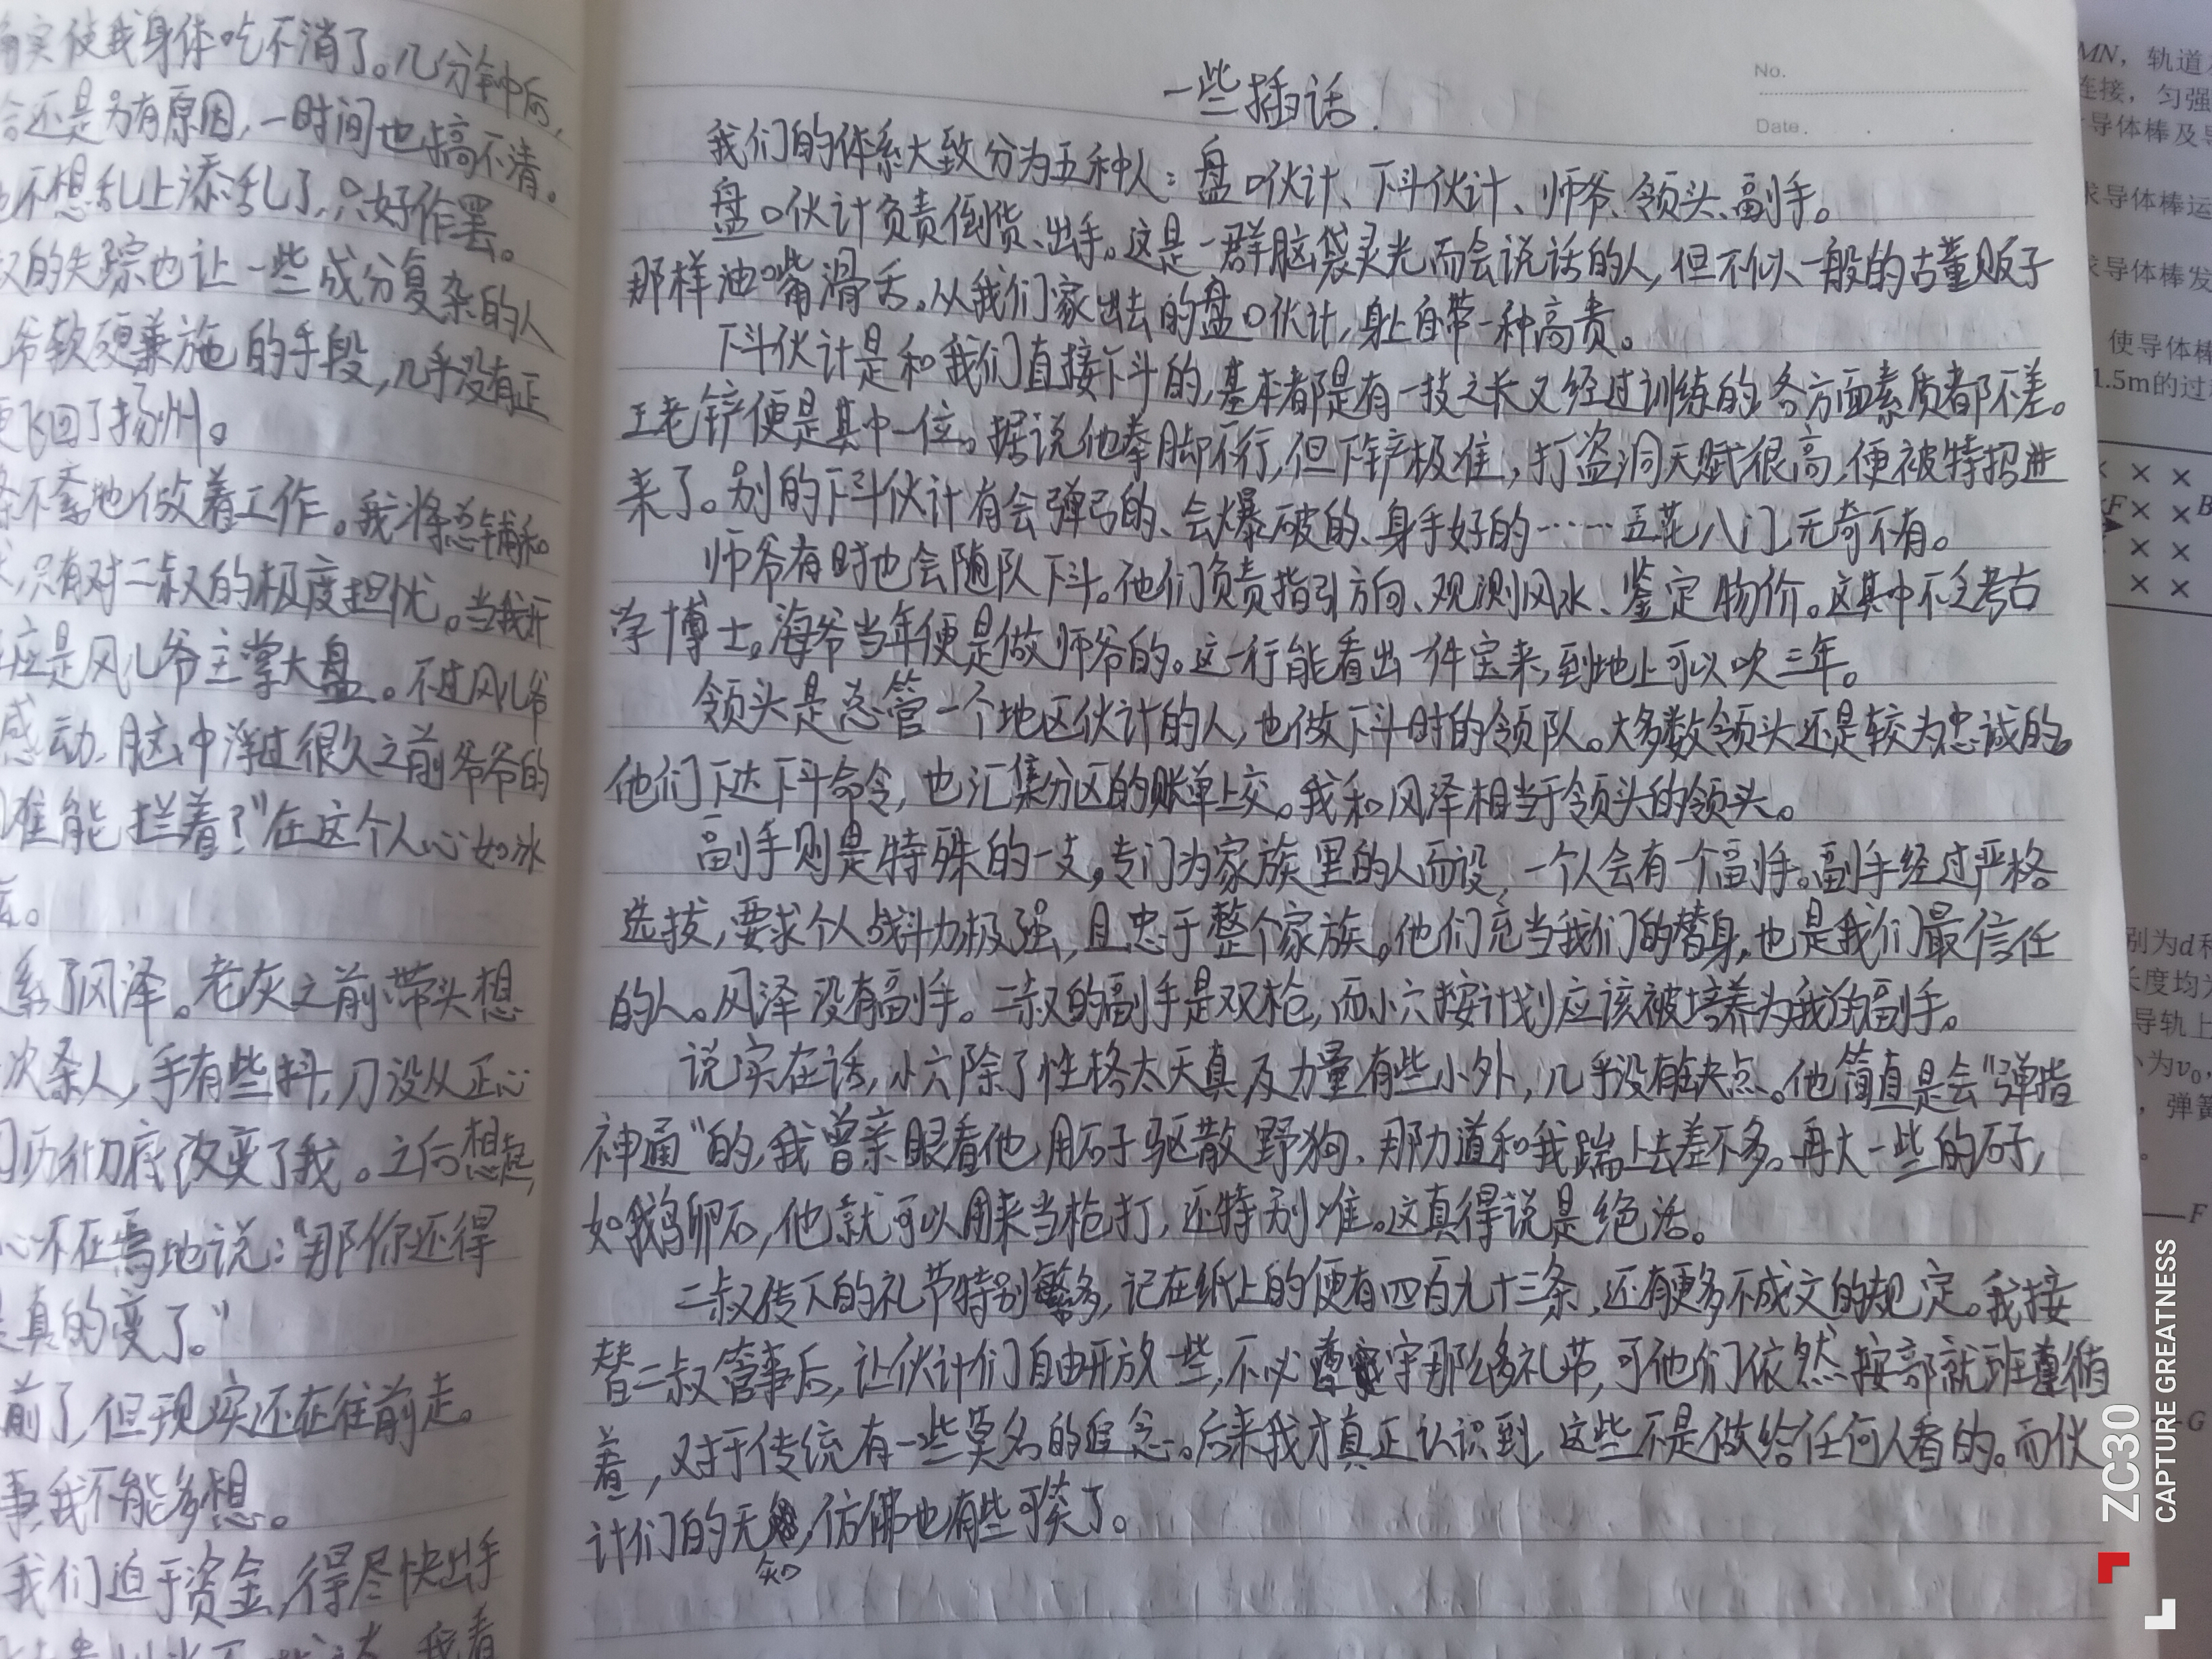 实使我身体吃不消了。几分钟后,
还是另有原因,一时间也搞不清。
不想乱上添乱了,只好作罢。
的失踪也让一些成分复杂的人
爷软硬兼施的手段,几乎没有正
飞回了扬州。
不紊地做着工作。我将总铺和
只有对二叔的极度担忧。当我开
应是风儿爷主掌大盘。不过风儿爷
感动,脑中浮过很久之前爷爷的
谁能拦着?”在这个人心如冰
系了风泽。老灰之前带头想
次杀人,手有些抖,刀没从正心
彻底改变了我。之后想起,
心不在焉地说:“那你还得
真的变了。”
前了,但现实还在往前走。
事,我不能多想。
我们迫于资金,得尽快出手
一些插话.
No.
Date.
我们的体系大致分为五种人:盘口伙计、下斗伙计、师爷、领头、副手。
盘口伙计负责倒货、出手。这是一群脑袋灵光而会说话的人,但不似一般的古董贩子
那样油嘴滑舌。从我们家出去的盘口伙计,身上自带一种高贵。
下斗伙计是和我们直接下斗的,基本都是有一技之长又经过训练的,各方面素质都不差。
王老铲便是其中一位。据说他拳脚不行,但下铲极准,打盗洞天赋很高,便被特招进
来了。别的下斗伙计有会弹弓的、会爆破的、身手好的……五花八门,无奇不有。
师爷有时也会随队下斗。他们负责指引方向、观测风水、鉴定物价。这其中不乏考古
学博士。海爷当年便是做师爷的。这一行能看出一件宝来,到地上可以吹三年。
领头是总管一个地区伙计的人,也做下斗时的领队。大多数领头还是较为忠诚的。
他们下达下斗命令,也汇集分区的账单上交。我和风泽相当于领头的领头。
副手则是特殊的一支,专门为家族里的人而设,一个人会有一个副手。副手经过严格
选拔,要求个人战斗力极强,且忠于整个家族。他们充当我们的替身,也是我们最信任
的人。风泽没有副手。二叔的副手是双枪,而小六按计划应该被培养为我的副手。
说实在话,小六除了性格太天真及力量有些小外,几乎没有缺点。他简直是会“弹指
神通”的,我曾亲眼看他用石子驱散野狗,那力道和我踹上去差不多。再大一些的石子,
如鹅卵石,他就可以用来当枪打,还特别准。这真得说是绝活。
二叔传下的礼节特别繁多,记在纸上的便有四百九十三条,还有更多不成文的规定。我接
替二叔管事后,让伙计们自由开放一些,不必遵守那么多礼节,可他们依然按部就班遵循
着,对于传统有一些莫名的追念。后来我才真正认识到,这些不是做给任何人看的。而伙
计们的无知,仿佛也有些可笑了。
MN,轨道
连接,匀强
导体棒及导
求导体棒运
求导体棒发
使导体棒
1.5m的过
F
B
别为d和
长度均为
导轨上
小为v₀,
,弹簧
F
G
ZC30
CAPTURE GREATNESS